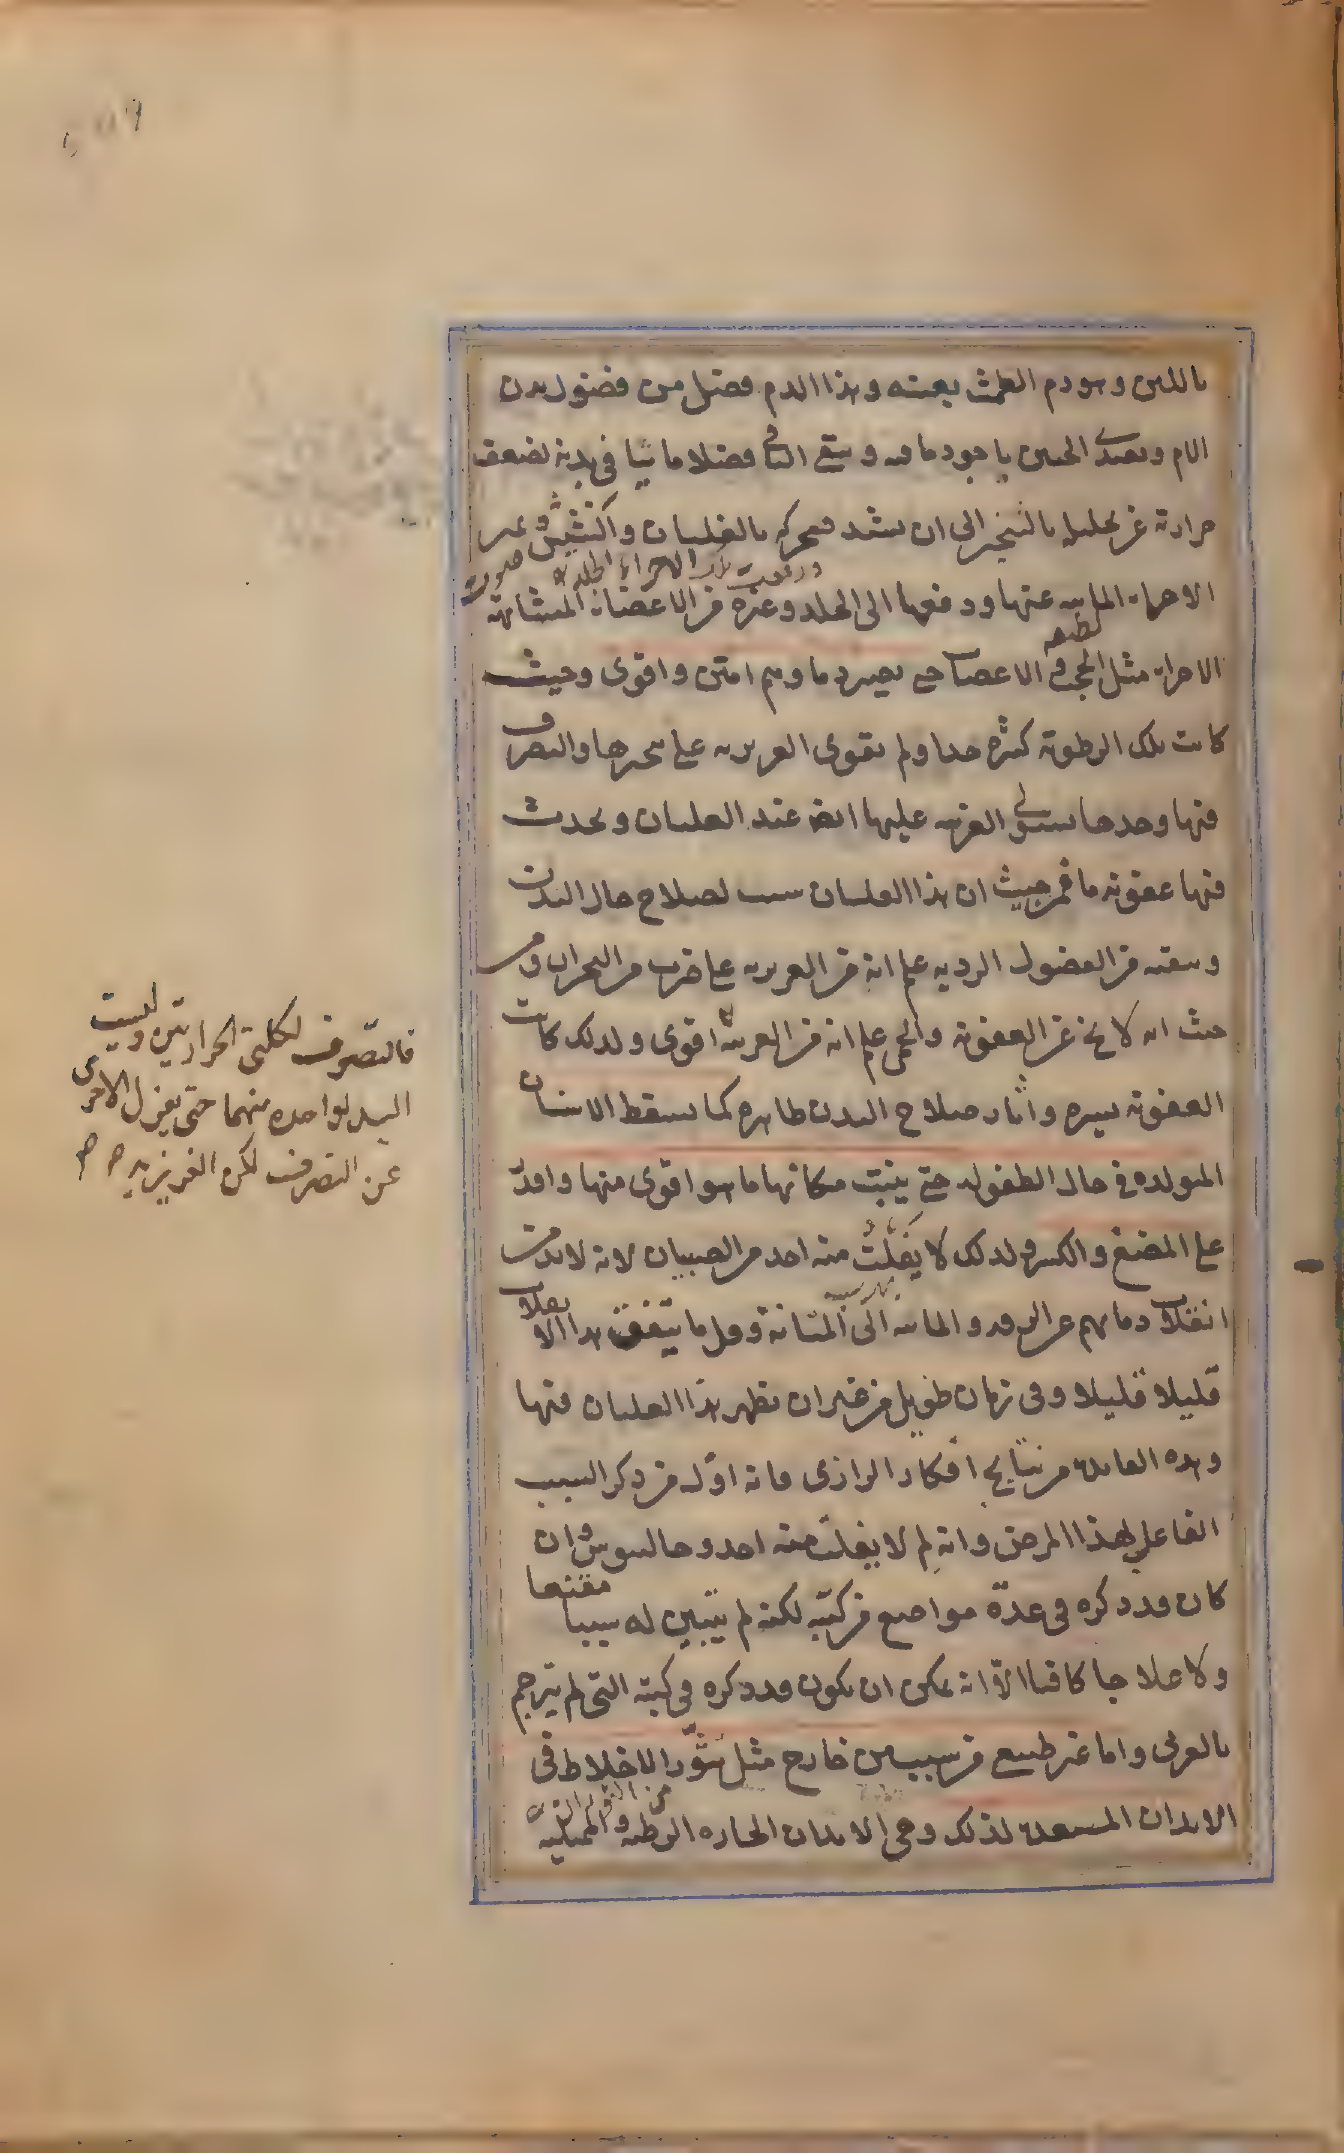 باللبن وهو دم الطمث بعينه وهذا الدم فضل من فضول بدن
الام ويغتذي الجنين باجود ما فيه ويبقي الباقي فضلا مائيا في بدنه لضعف
حرارته عن تحليله بالتبخير الى ان يشتد فيحركه بالغليان والنشيش وتميز
الاجزاء المائية عنها ودفعها الى الجلد وغيره من الاعضاء المتشابهة
الاجزاء مثل الحجب والاعصاب حتى يصير دماوهم امتن واقوى وحيث
كانت تلك الرطوبة كثيرة جدا ولم تقوى الغريزية على تبخيرها والتصرف
فيها وحدها يستولي الغريبة عليها ايضا عند الغليان ويحدث
فيها عفونة ما فمن حيث ان هذا الغليان سبب لصلاح حال البدن
ونقيته من الفضول الردية علم انه من الغريزية على ضرب من البحران ومن
حيث انه لا يخ عن العفونة والحمى علم انه من الغريبة اقوى ولذلك كانت
العفونة يسيرة واثار صلاح البدن ظاهرة كما يسقط الاسنان
المتولدة في حال الطفولة حتى ينبت مكانها ما هو اقوى منها واقدر
على المضغ والكسر ولذلك لا يفلت منه احد من الصبيان لانه لا بد من
انقلاب دمائهم عن الرقة والمائية الى المتانة وقل ما يتفق هذا الانقلاب
قليلا قليلا وفي زمان طويل من غير ان يظهر هذا الغليان فيها
وهذه الفائدة من نتايج افكار الرازى فانه اول من ذكر السبب
الفاعلي لهذا المرض وانه لم لا يفلت منه احد وجالينوس وان
كان قد ذكره في عدة مواضع من كتبه لكنه لم يتبين له سببا مقنعا
ولا علاجا كافيا الا انه يمكن ان يكون قد ذكره في كتبه التى لم تترجم
بالعربى واما غير طبيعي من سبب من خارج مثل تثور الاخلاط في
الابدان المستعدة لذلك وهي الابدان الحارة الرطبة والممتلية
فالتصرف لكلتي الحرارتين وليست
اليد لواحدة منهما حتى يعزل الاخرى
عن التصرف لكن الغريزية